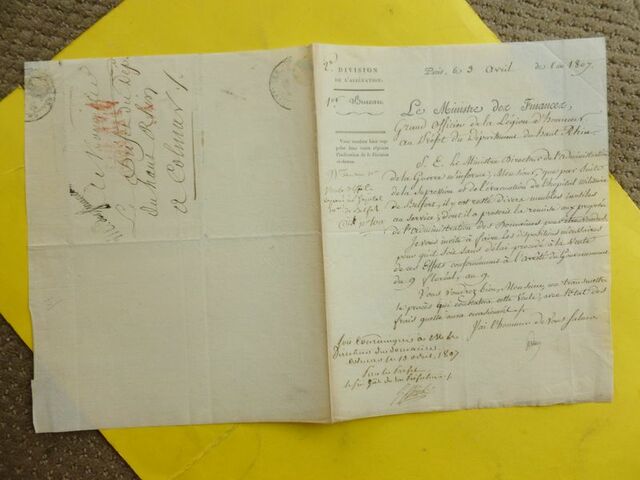 à Monsieur
Le Préfet du Dépt
du haut Rhin
à Colmar
2e DIVISION
DE L'ALIÉNATION.
1er Bureau
Vous voudrez bien rappeler dans votre réponse l'indication de la Division
Paris, le 3 Avril de l'an 1807.
Le Ministre des Finances,
Grand Officier de la Légion d'Honneur
au Préfet du Département du haut Rhin.
S. E. le Ministre Directeur de l'Administration
de la Guerre m'informe, Monsieur, que par Suite
de la Supression et de l'évacuation de l'hopital militaire
de Belfort, il est resté divers meubles inutiles
au service, dont il a prescrit la remise aux préposés
de l'administration des Domaines pour être vendus.
Je vous invite à faire les dispositions nécessaires
pour qu'il soit sans délai procédé à la Vente
de ces Effets conformément à l'arrêté du Gouvernement
du 9 floréal, an 9.
Vous voudrez bien, Monsieur, me transmettre
le procès qui constatera cette Vente, avec l'état des
frais qu'elle aura occasionnés.
J'ai l'honneur de vous saluer
Soit communiqué à Mr le
Directeur des domaines
Colmar le 13 avril 1807
Pour le Préfet